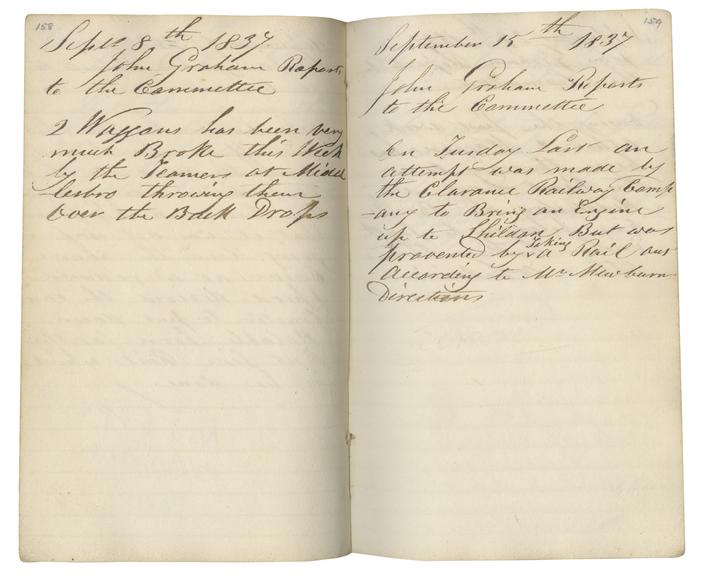 158
Sept 8th 1837
John Graham Reports
to the Committee
2 Waggans has been very
much Broke this Week
by the Teamers at Middl
-lesbro throwing them
Over the Back Drops
159
September 15th 1837
John Graham Reports
to the Committee
On Tusday Last an
attempt was made by
the Clarance Railway Comp
-any to Bring an Engine
up to Shildon But was
provented by Taking a Rail out
According to Mr Mewburn
Directions